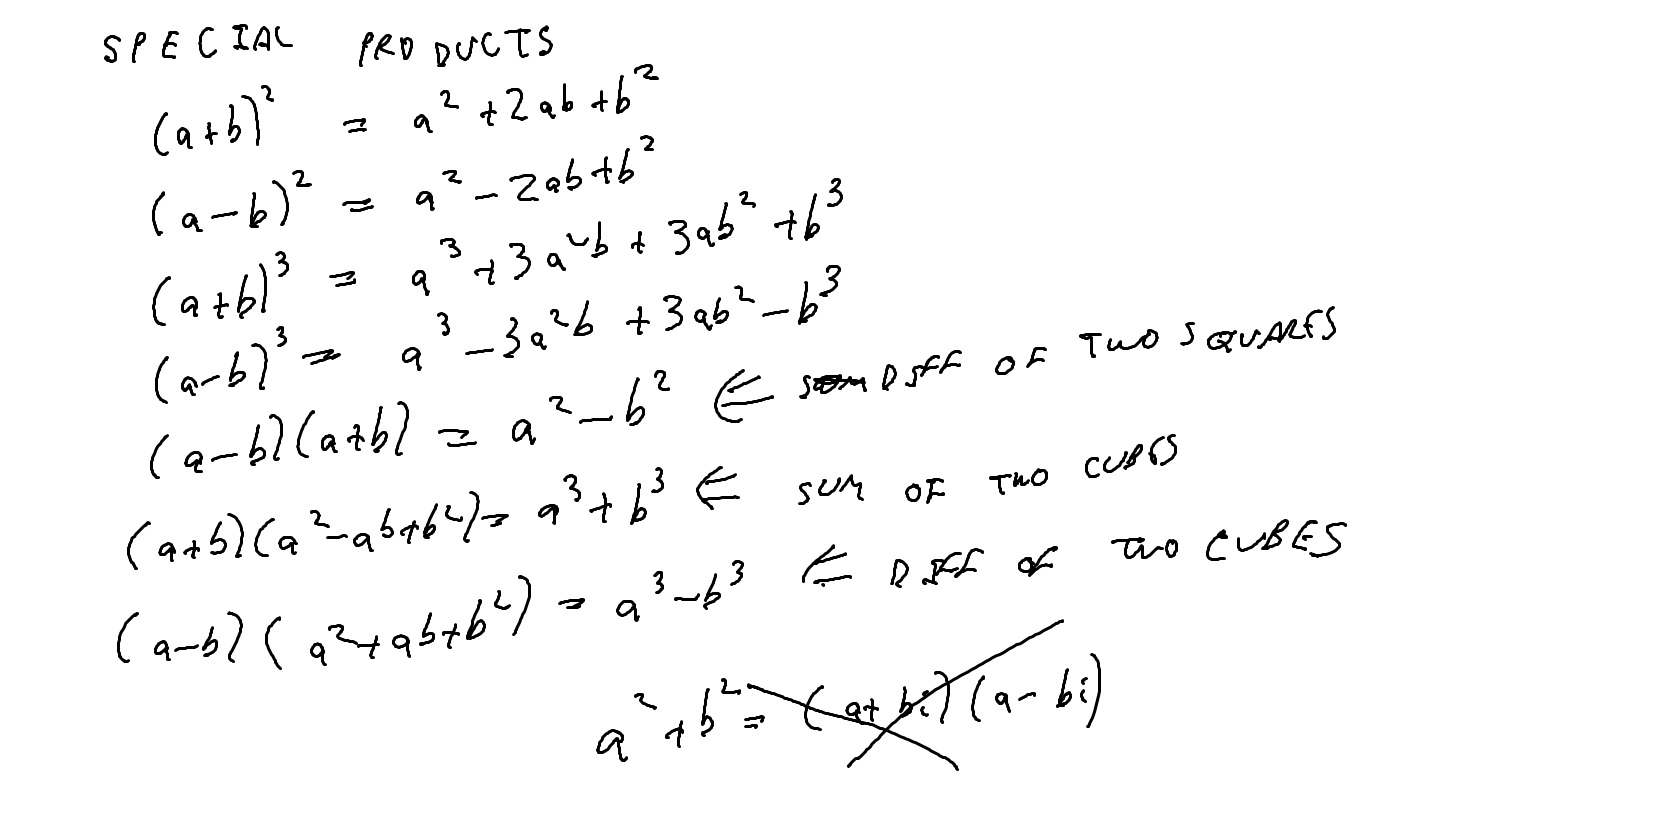 SPECIAL PRODUCTS
(a+b)² = a² + 2ab + b²
(a-b)² = a² - 2ab + b²
(a+b)³ = a³ + 3a²b + 3ab² + b³
(a-b)³ = a³ - 3a²b + 3ab² - b³
(a-b)(a+b) = a² - b² ⇐ SUM DIFF OF TWO SQUARES
(a+b)(a²-ab+b²) = a³ + b³ ⇐ SUM OF TWO CUBES
(a-b)(a²+ab+b²) = a³ - b³ ⇐ DIFF OF TWO CUBES
a² + b² = (a + bi)(a - bi)